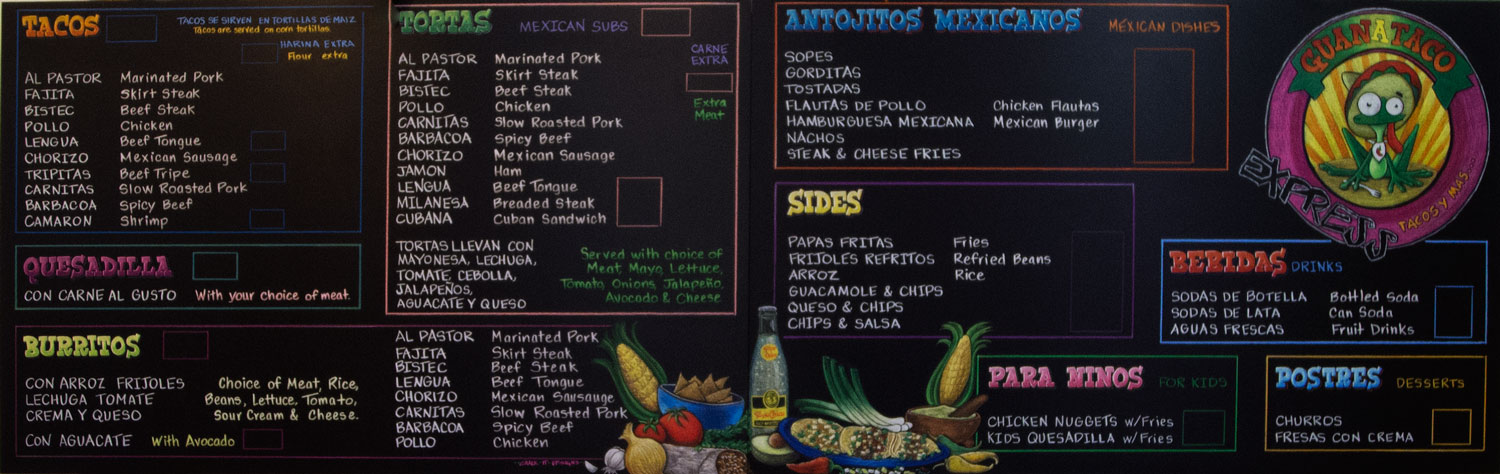 TACOS
TACOS SE SIRVEN EN TORTILLAS DE MAIZ
Tacos are served on corn tortillas.
HARINA EXTRA
Flour extra
AL PASTOR Marinated Pork
FAJITA Skirt Steak
BISTEC Beef Steak
POLLO Chicken
LENGUA Beef Tongue
CHORIZO Mexican Sausage
TRIPITAS Beef Tripe
CARNITAS Slow Roasted Pork
BARBACOA Spicy Beef
CAMARON Shrimp
QUESADILLA
CON CARNE AL GUSTO With your choice of meat.
BURRITOS
CON ARROZ FRIJOLES Choice of Meat, Rice,
LECHUGA TOMATE Beans, Lettuce, Tomato,
CREMA Y QUESO Sour Cream & Cheese.
CON AGUACATE With Avocado
AL PASTOR Marinated Pork
FAJITA Skirt Steak
BISTEC Beef Steak
LENGUA Beef Tongue
CHORIZO Mexican Sausauge
CARNITAS Slow Roasted Pork
BARBACOA Spicy Beef
POLLO Chicken
TORTAS MEXICAN SUBS
CARNE
EXTRA
Extra
Meat
AL PASTOR Marinated Pork
FAJITA Skirt Steak
BISTEC Beef Steak
POLLO Chicken
CARNITAS Slow Roasted Pork
BARBACOA Spicy Beef
CHORIZO Mexican Sausage
JAMON Ham
LENGUA Beef Tongue
MILANESA Breaded Steak
CUBANA Cuban Sandwich
TORTAS LLEVAN CON
MAYONESA, LECHUGA,
TOMATE, CEBOLLA,
JALAPEÑOS,
AGUACATE Y QUESO
Served with choice of
Meat, Mayo, Lettuce,
Tomato, Onions, Jalapeño,
Avocado & Cheese
ANTOJITOS MEXICANOS MEXICAN DISHES
SOPES
GORDITAS
TOSTADAS
FLAUTAS DE POLLO Chicken Flautas
HAMBURGUESA MEXICANA Mexican Burger
NACHOS
STEAK & CHEESE FRIES
SIDES
PAPAS FRITAS Fries
FRIJOLES REFRITOS Refried Beans
ARROZ Rice
GUACAMOLE & CHIPS
QUESO & CHIPS
CHIPS & SALSA
GUANATACO
EXPRESS
TACOS Y MAS...
BEBIDAS DRINKS
SODAS DE BOTELLA Bottled Soda
SODAS DE LATA Can Soda
AGUAS FRESCAS Fruit Drinks
PARA NINOS FOR KIDS
CHICKEN NUGGETS w/Fries
KIDS QUESADILLA w/Fries
POSTRES DESSERTS
CHURROS
FRESAS CON CREMA